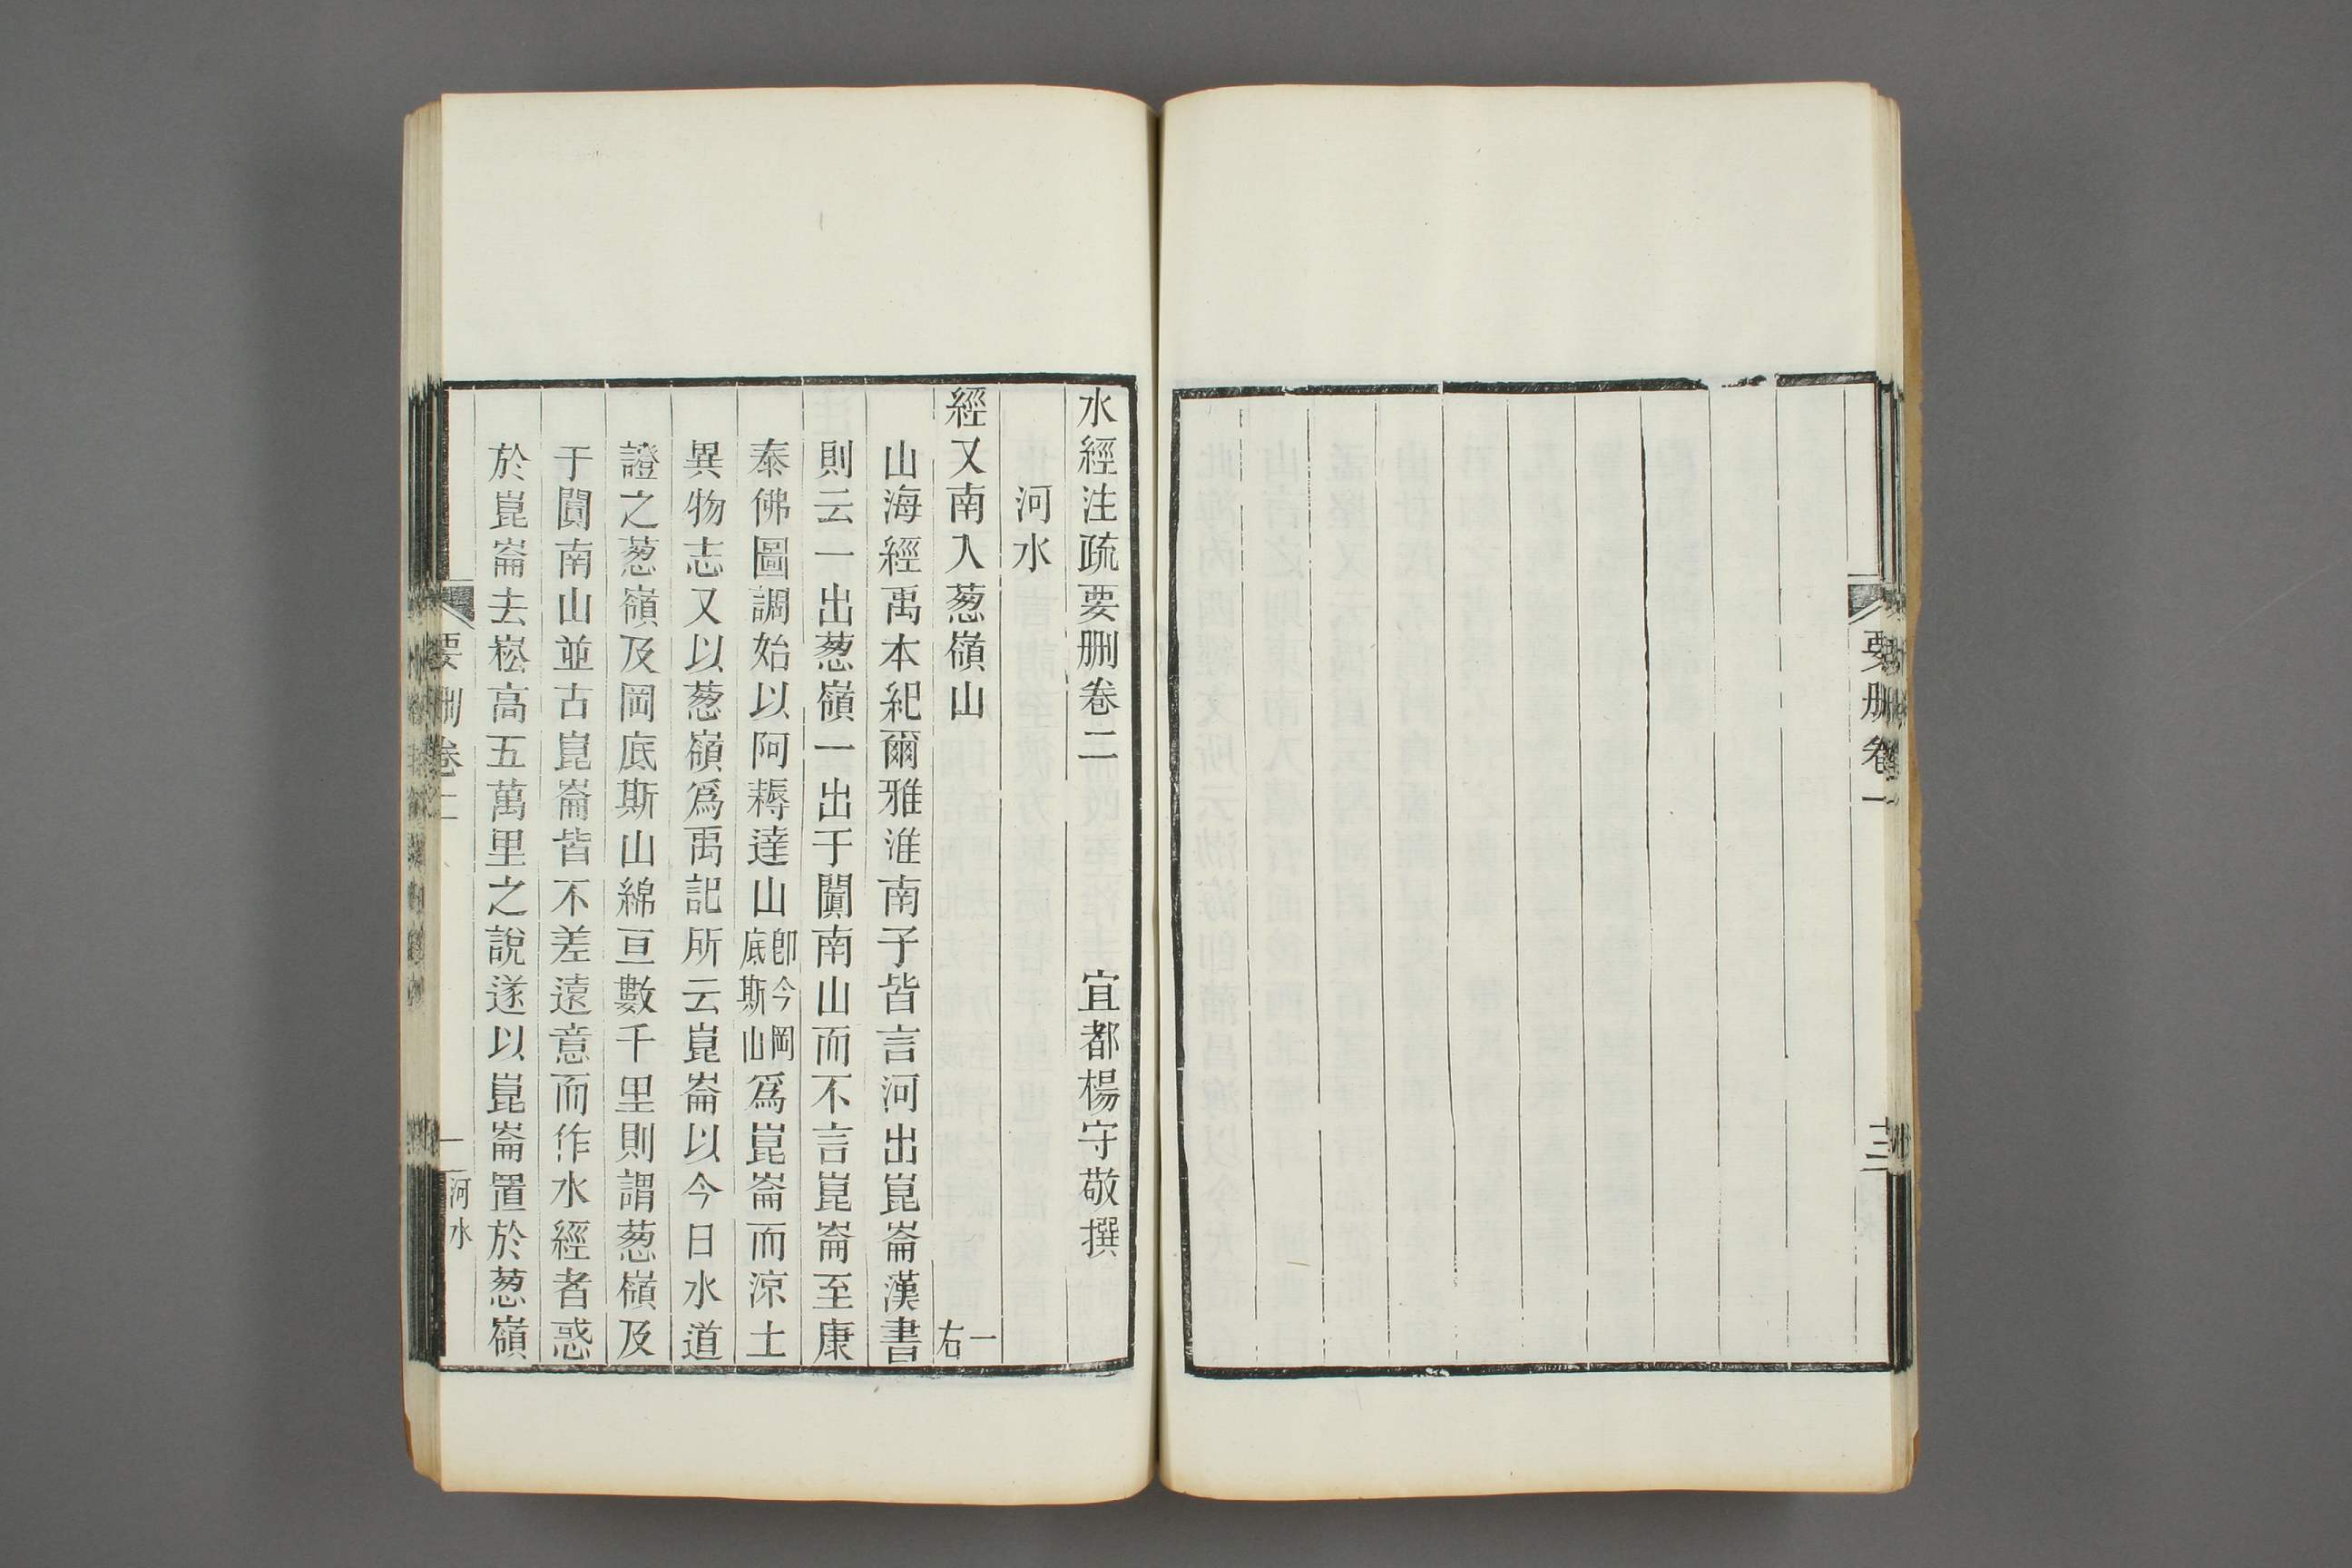 要删卷一
十三
水經注疏要删卷二 宜都楊守敬撰
河水
經又南入葱嶺山 一右
山海經禹本紀爾雅淮南子皆言河出崑崙漢書
則云一出葱嶺一出于闐南山而不言崑崙至康
泰佛圖調始以阿耨達山卽今岡底斯山爲崑崙而涼土
異物志又以葱嶺爲禹記所云崑崙以今日水道
證之葱嶺及岡底斯山綿亘數千里則謂葱嶺及
于闐南山並古崑崙皆不差遠意而作水經者惑
於崑崙去崧高五萬里之說遂以崑崙置於葱嶺
要删卷二
一
河水